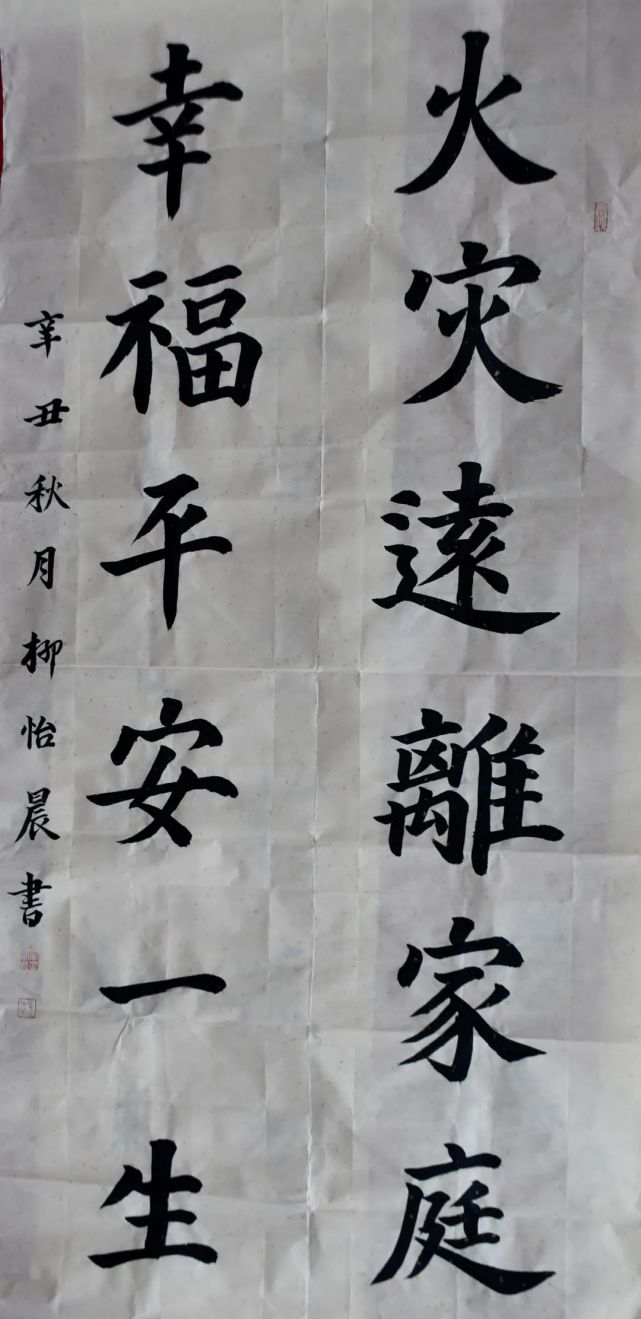 火灾遠離家庭
幸福平安一生
辛丑秋月柳怡晨書